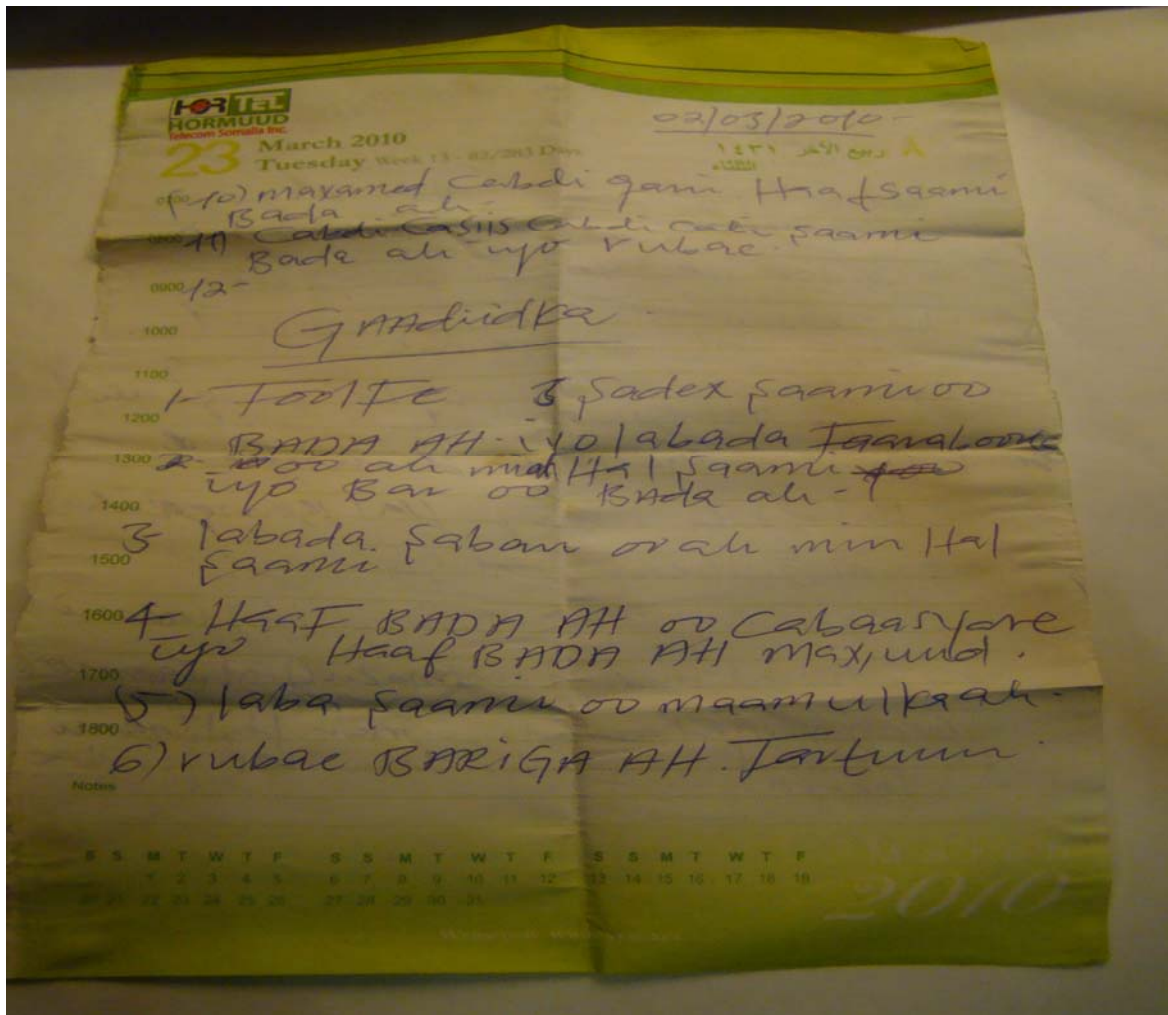 HORTEL
HORMUUD
Telecom Somalia Inc.
02/03/2010-
23 March 2010
Tuesday Week 13 - 82/283 Days
٨ ربيع الآخر ١٤٣١
10) maxamed Cabdi qani Haaf Saami
Bada ah.
0800
11) Cabdi Casiis Cabdi Saami
Bada ah iyo rubac.
0900 12-
GAAdiidka
1000
1100
1- FoolFe 3 Sadex Saami oo
1200
BADA AH - iyo labada
1300 2- oo ah Hal Saami
iyo Bar oo BAda ah -
1400
3- labada Sabaan oo ah min Hal
1500 Saami
1600 4- HaaF BADA AH oo Cabaasyare
iyo Haaf BADA AH max,uud.
1700
(5) laba Saami oo maamulka ah.
1800
6) rubac BARiGA AH. Tartuun.
Notes
S S M T W T F S S M T W T F S S M T W T F
1 2 3 4 5 6 7 8 9 10 11 12 13 14 15 16 17 18 19
20 21 22 23 24 25 26 27 28 29 30 31
2010